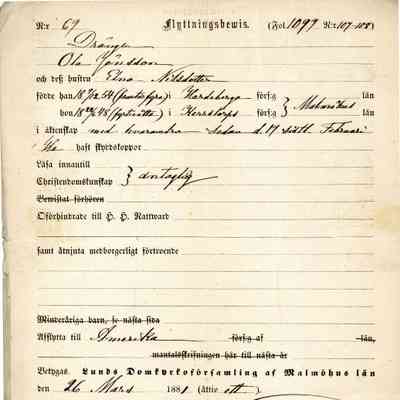 N:r 69 Flyttningsbewis. (Fol. 1099 N:r 107-108)
Drängen
Ola Jönsson
och deß hustru Elna Nilsdotter
födde han 18 7/12 54 (femtiofyra) i Hardeberga förs:g
hon 18 48 (fyrtioåtta) i Herrstorps förs:g } Malmöhus län
i äktenskap med hvarandra sedan d. 17 sistl. Februari
Ha haft skyddskoppor
Läsa innantill
Christendomskunskap } antaglig
Bewistat förhören
Oförhindrade till H. H. Nattward
samt åtnjuta medborgerligt förtroende
Minderåriga barn, se nästa sida
Afflytta till Amerika förs:g af län,
mantalsskrifningen här till nästa år
Betygas. Lunds Domkyrkoförsamling af Malmöhus län
den 26 Mars 1881 (åttio ett).